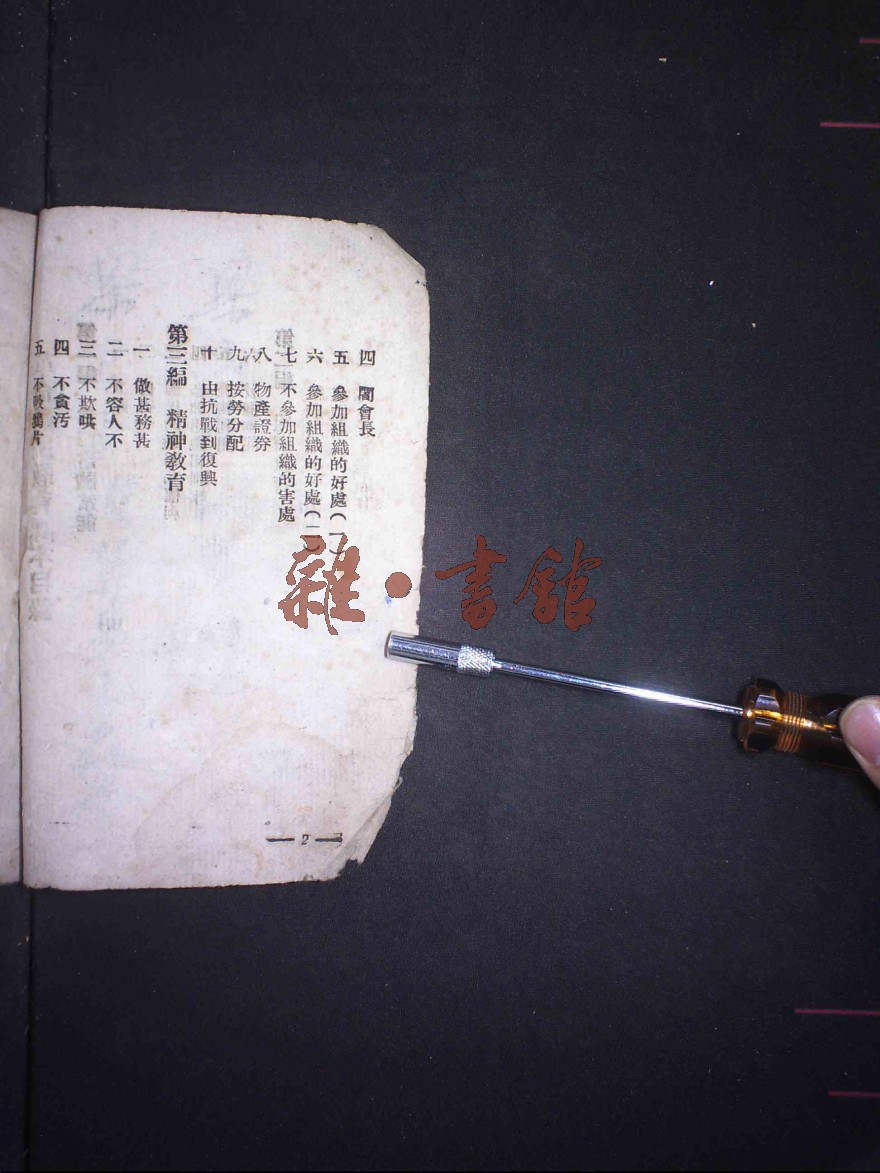 四　閻會長
五　參加組織的好處（一）
六　參加組織的好處（二）
七　不參加組織的害處
八　物產證券
九　按勞分配
十　由抗戰到復興
第三編　精神教育
一　做甚務甚
二　不容人不
三　不欺哄
四　不貪汚
五　不吸鴉片
— 2 —
雜·書館